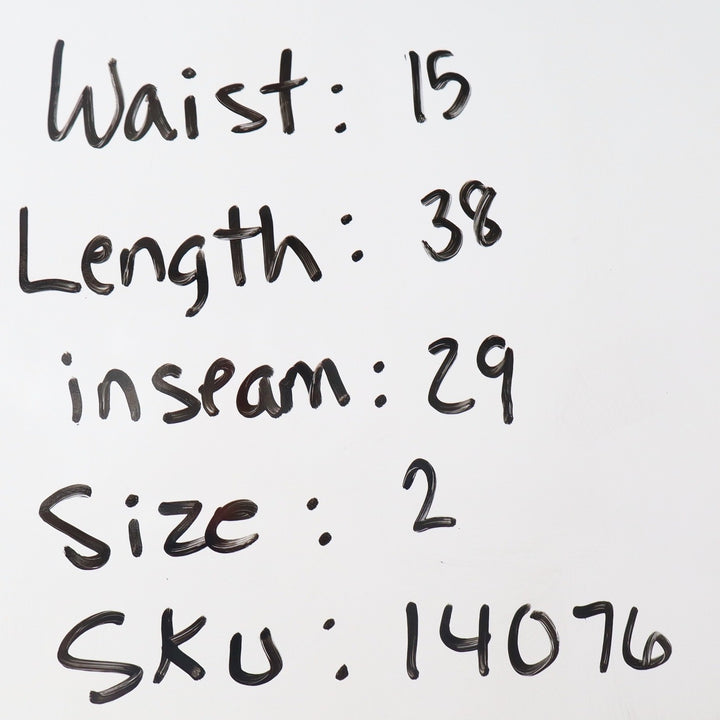 Waist: 15
Length: 38
inseam: 29
Size: 2
SKU: 14076